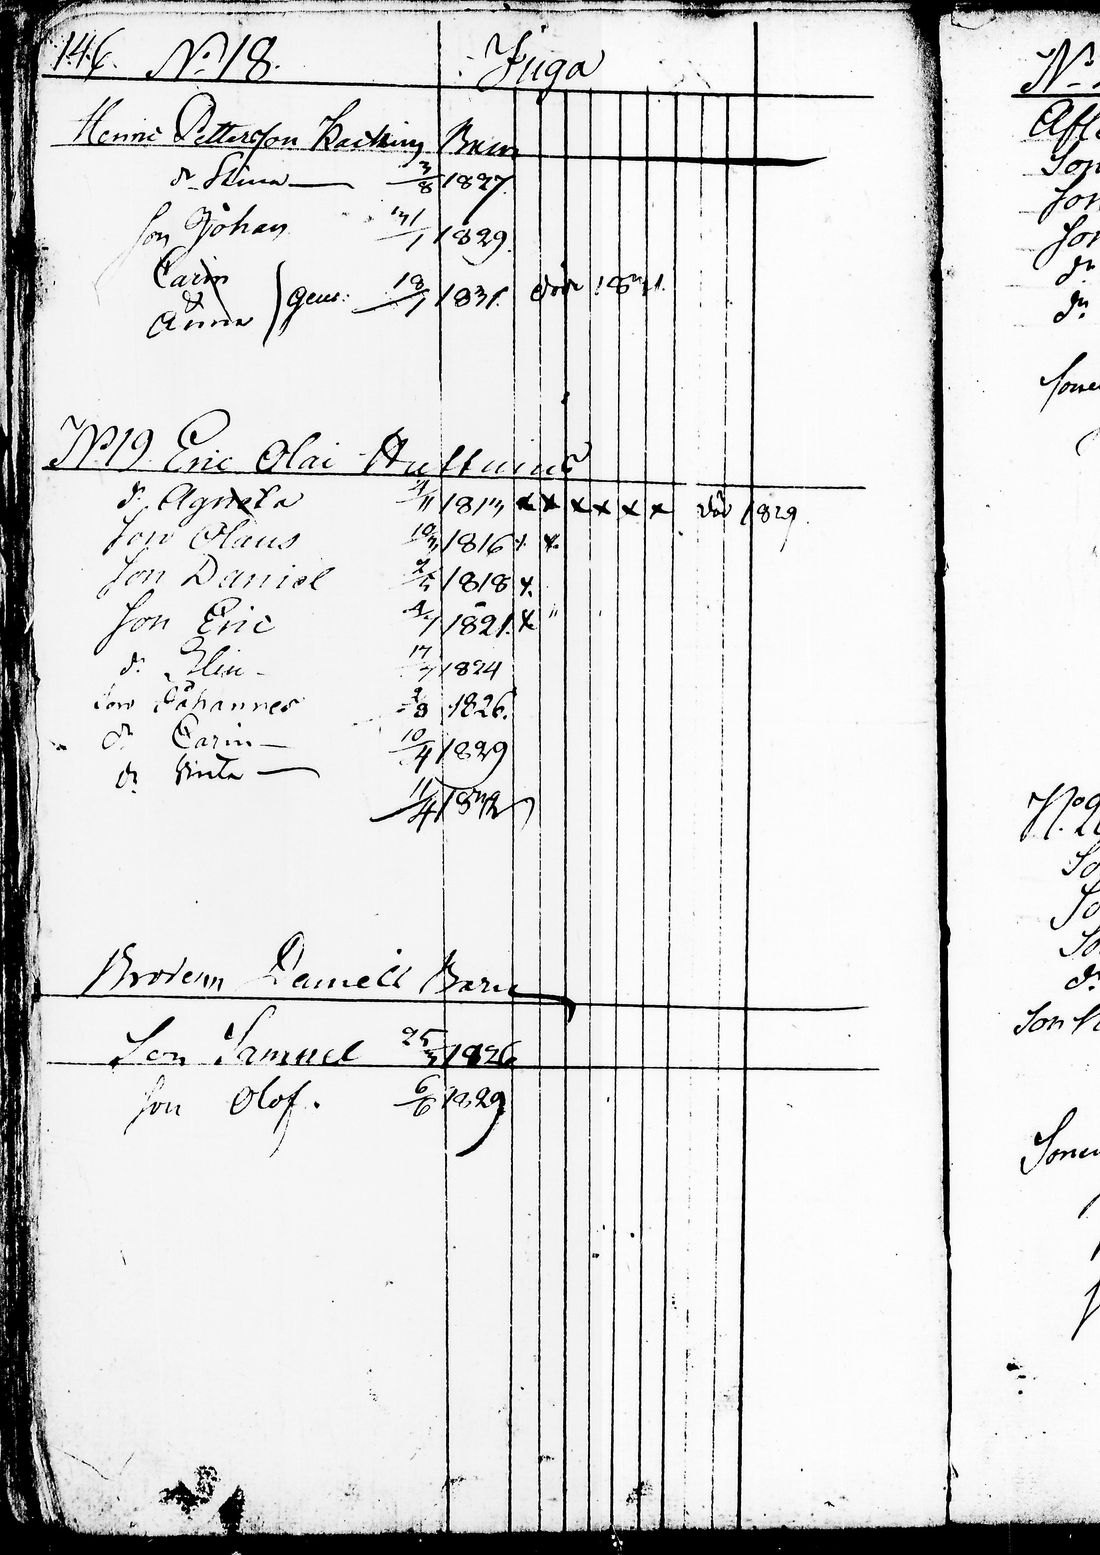 146. No 18. Juga
Henric Pettersson Barn
dr Stina 3/8 1827.
Son Johan 31/1 1829.
Carin
& Gem: 18/1 1831. döde 1831
Anna
No 19 Eric Olai
dr Agneta /11 1813 x x x x x x död 1829
Son Olaus 10/3 1816 x x
Son Daniel 2/5 1818 x.
Son Eric 4/1 1821. x "
dr Elin 17/7 1824
Son Johannes 2/3 1826.
dr Carin 10/4 1829
dr 11/4 1832
Brodern Daniell Barn
Son Samuel 25/3 1826
Son Olof. 6/6 1829
No
Son
Son
Son
dr
dr
No
So
So
So
dr
Son